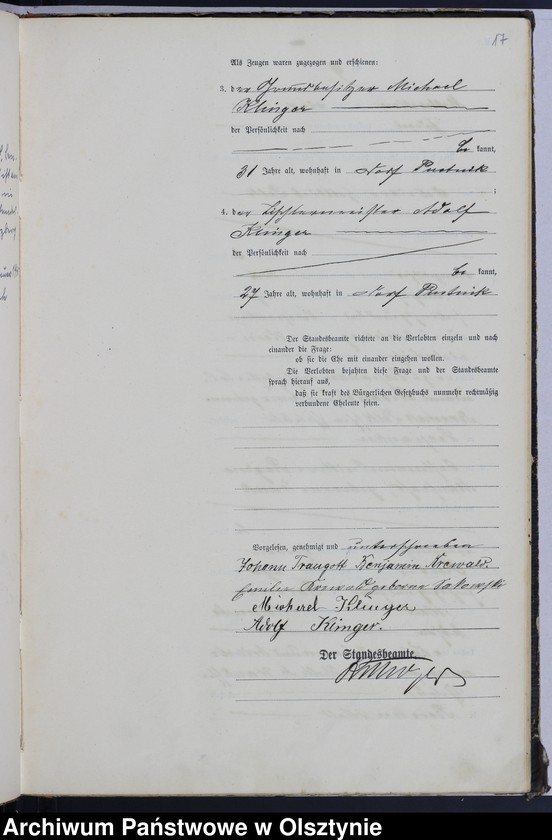 17
Als Zeugen waren zugezogen und erschienen:
3. der Grundbesitzer Michael
Klinger
der Persönlichkeit nach
be kannt,
31 Jahre alt, wohnhaft in Dorf
;
4. der Tischlermeister Adolf
Klinger
der Persönlichkeit nach
be kannt,
27 Jahre alt, wohnhaft in Dorf
Der Standesbeamte richtete an die Verlobten einzeln und nach
einander die Frage:
ob sie die Ehe mit einander eingehen wollen.
Die Verlobten bejahten diese Frage und der Standesbeamte
sprach hierauf aus,
daß sie kraft des Bürgerlichen Gesetzbuchs nunmehr rechtmäßig
verbundene Eheleute seien.
Vorgelesen, genehmigt und unterschrieben
Johann Traugott Benjamin Krewald.
Emilie Krewald geborne Sakowski
Michael Klinger
Adolf Klinger.
Der Standesbeamte.
Archiwum Państwowe w Olsztynie